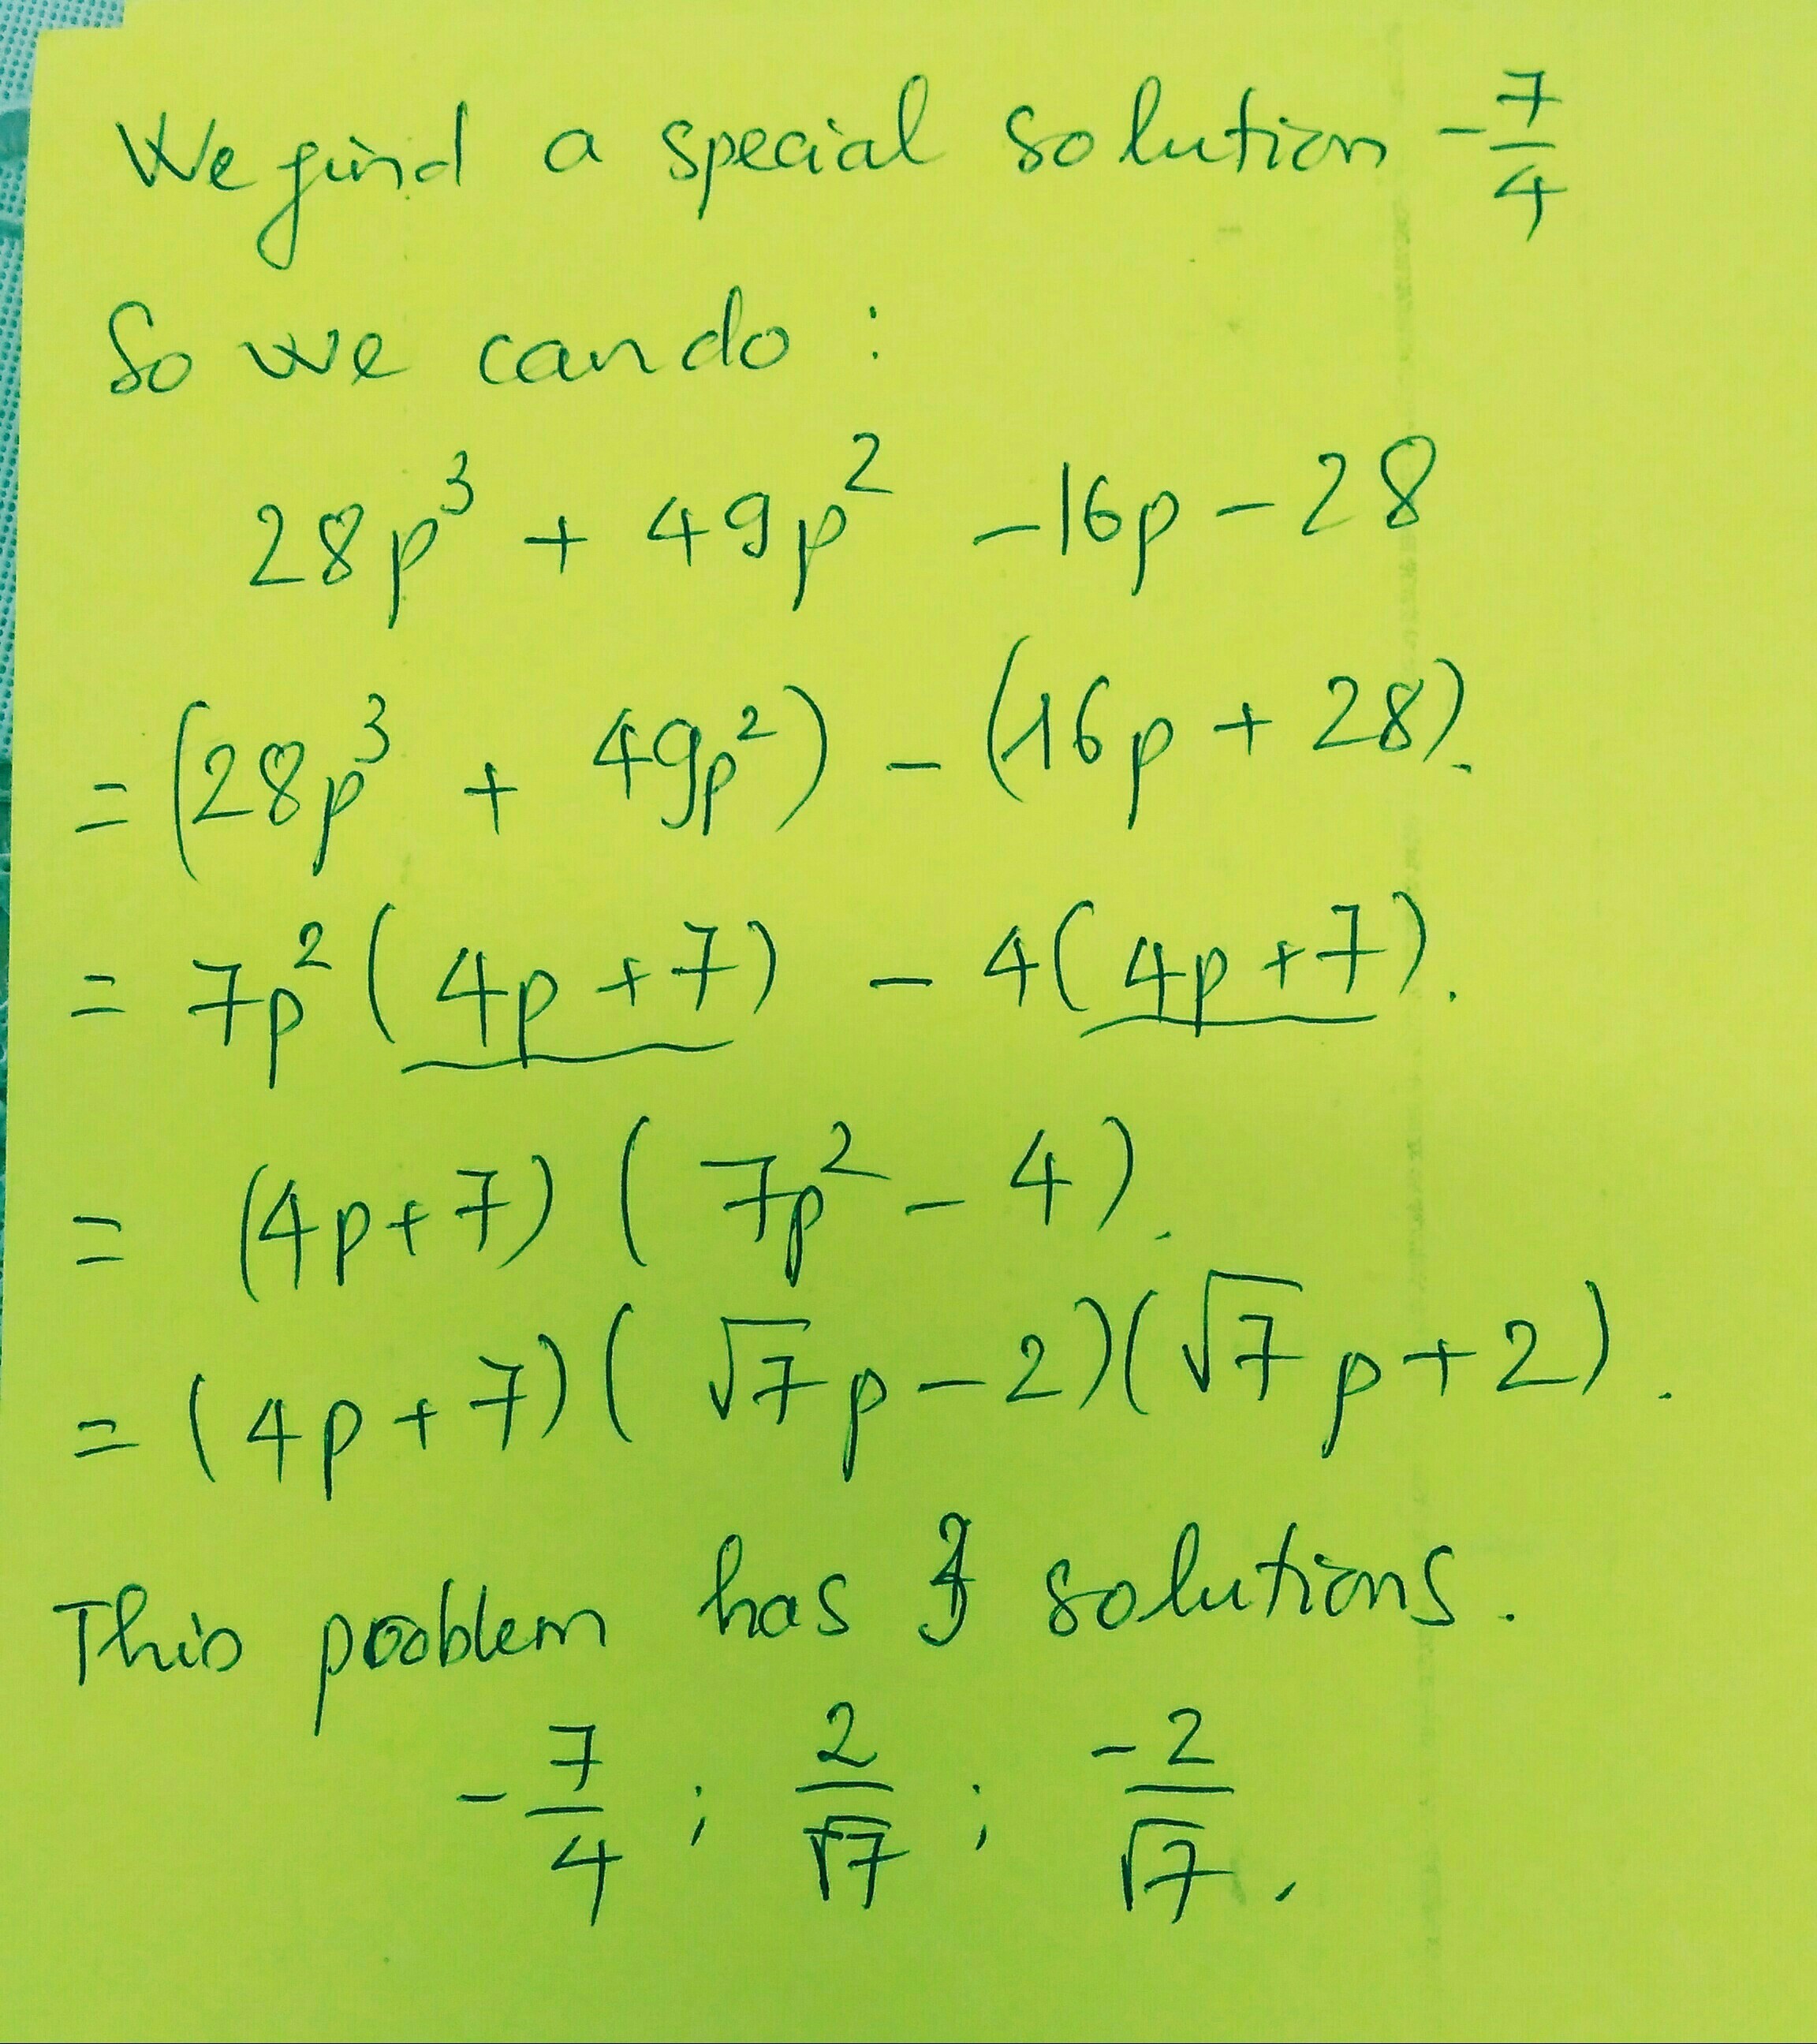 We find a special solution -7/4
So we can do :
28p³ + 49p² -16p - 28
= (28p³ + 49p²) - (16p + 28).
= 7p² ( 4p + 7) - 4( 4p + 7).
= (4p + 7) ( 7p² - 4).
= (4p + 7) ( √7 p - 2)(√7 p + 2).
This problem has 3 solutions.
-7/4 ; 2/√7 ; -2/√7 .